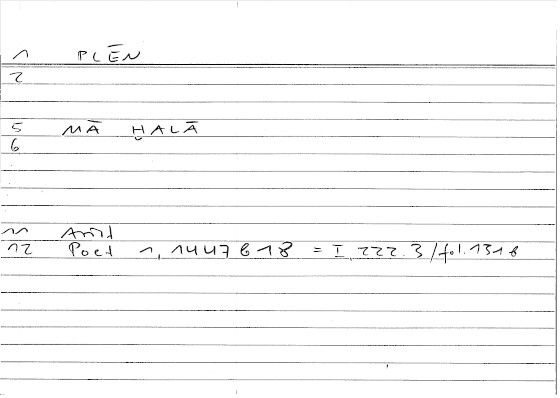 1 PLĒN
2
5 MĀ ḪALĀ
6
11 Amīd
12 Poet 1, 1447 b 18 = I, 222.3/fol. 131 b